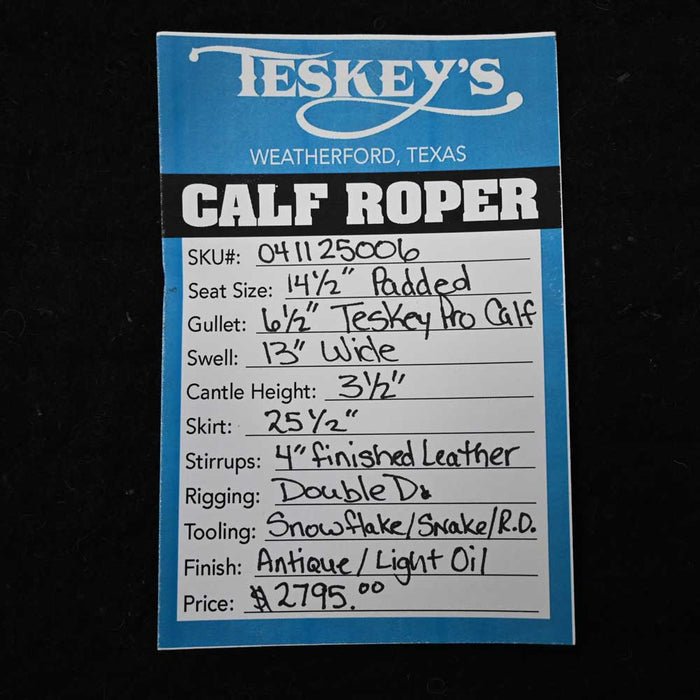 TESKEY'S
WEATHERFORD, TEXAS
CALF ROPER
SKU#: 041125006
Seat Size: 14 1/2" Padded
Gullet: 6 1/2" Teskey Pro Calf
Swell: 13" Wide
Cantle Height: 3 1/2"
Skirt: 25 1/2"
Stirrups: 4" finished Leather
Rigging: Double D
Tooling: Snowflake/Snake/R.D.
Finish: Antique/Light Oil
Price: $2795.00